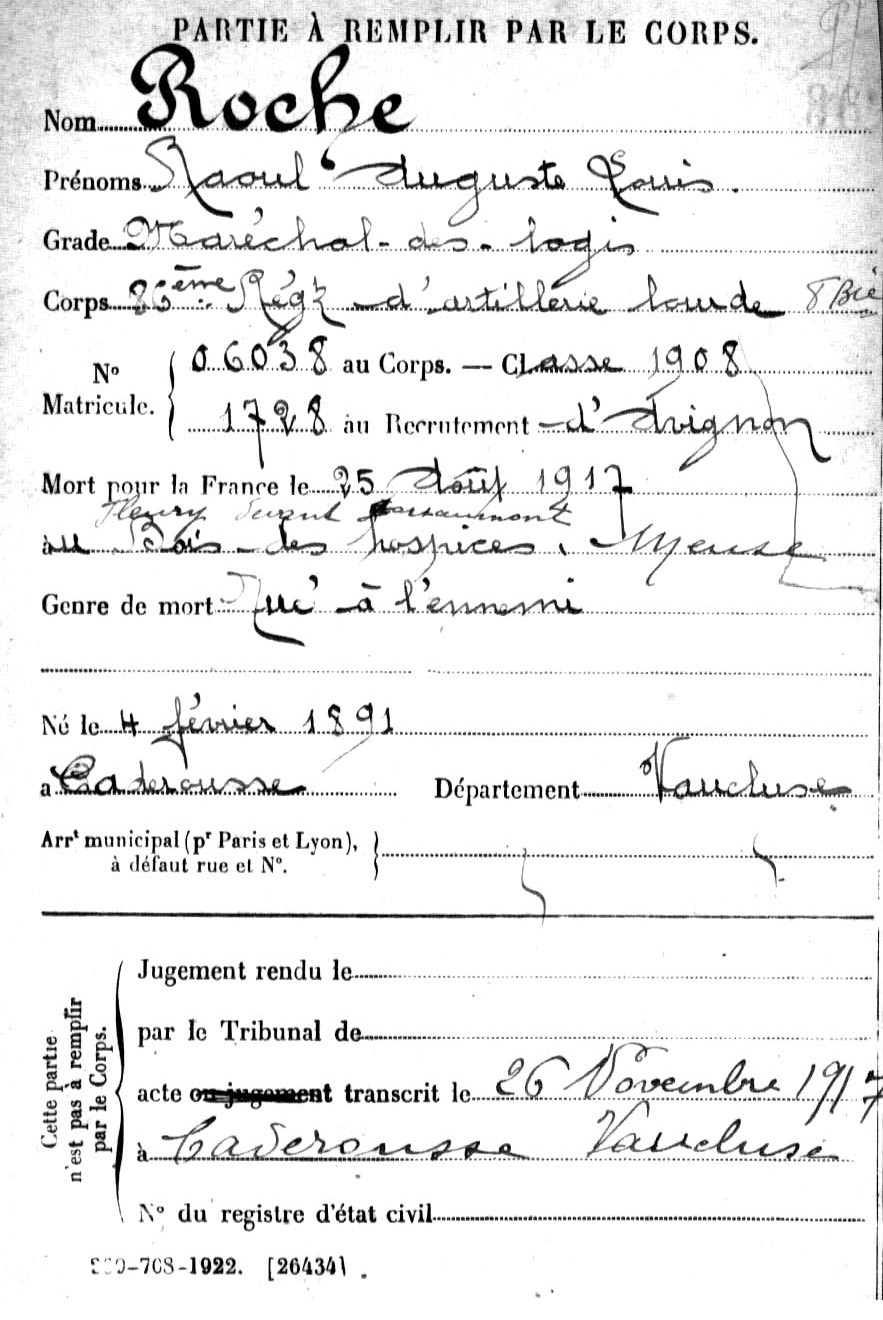 PARTIE À REMPLIR PAR LE CORPS.
Nom Roche
Prénoms Raoul Auguste Louis.
Grade Maréchal-des-logis
Corps 86ème Régt d'artillerie lourde 8 Bie
No Matricule. 06038 au Corps. — Classe 1908
1728 au Recrutement d'Avignon
Mort pour la France le 25 Août 1917
Fleury devant
au Bois-des hospices, Meuse
Genre de mort Tué à l'ennemi
Né le 4 février 1891
a Caderousse Département Vaucluse
Arrt municipal (pr Paris et Lyon),
à défaut rue et No.
Cette partie n'est pas à remplir par le Corps.
Jugement rendu le
par le Tribunal de
acte ou jugement transcrit le 26 Novembre 1917
à Caderousse Vaucluse
No du registre d'état civil
708-1922. [26434]